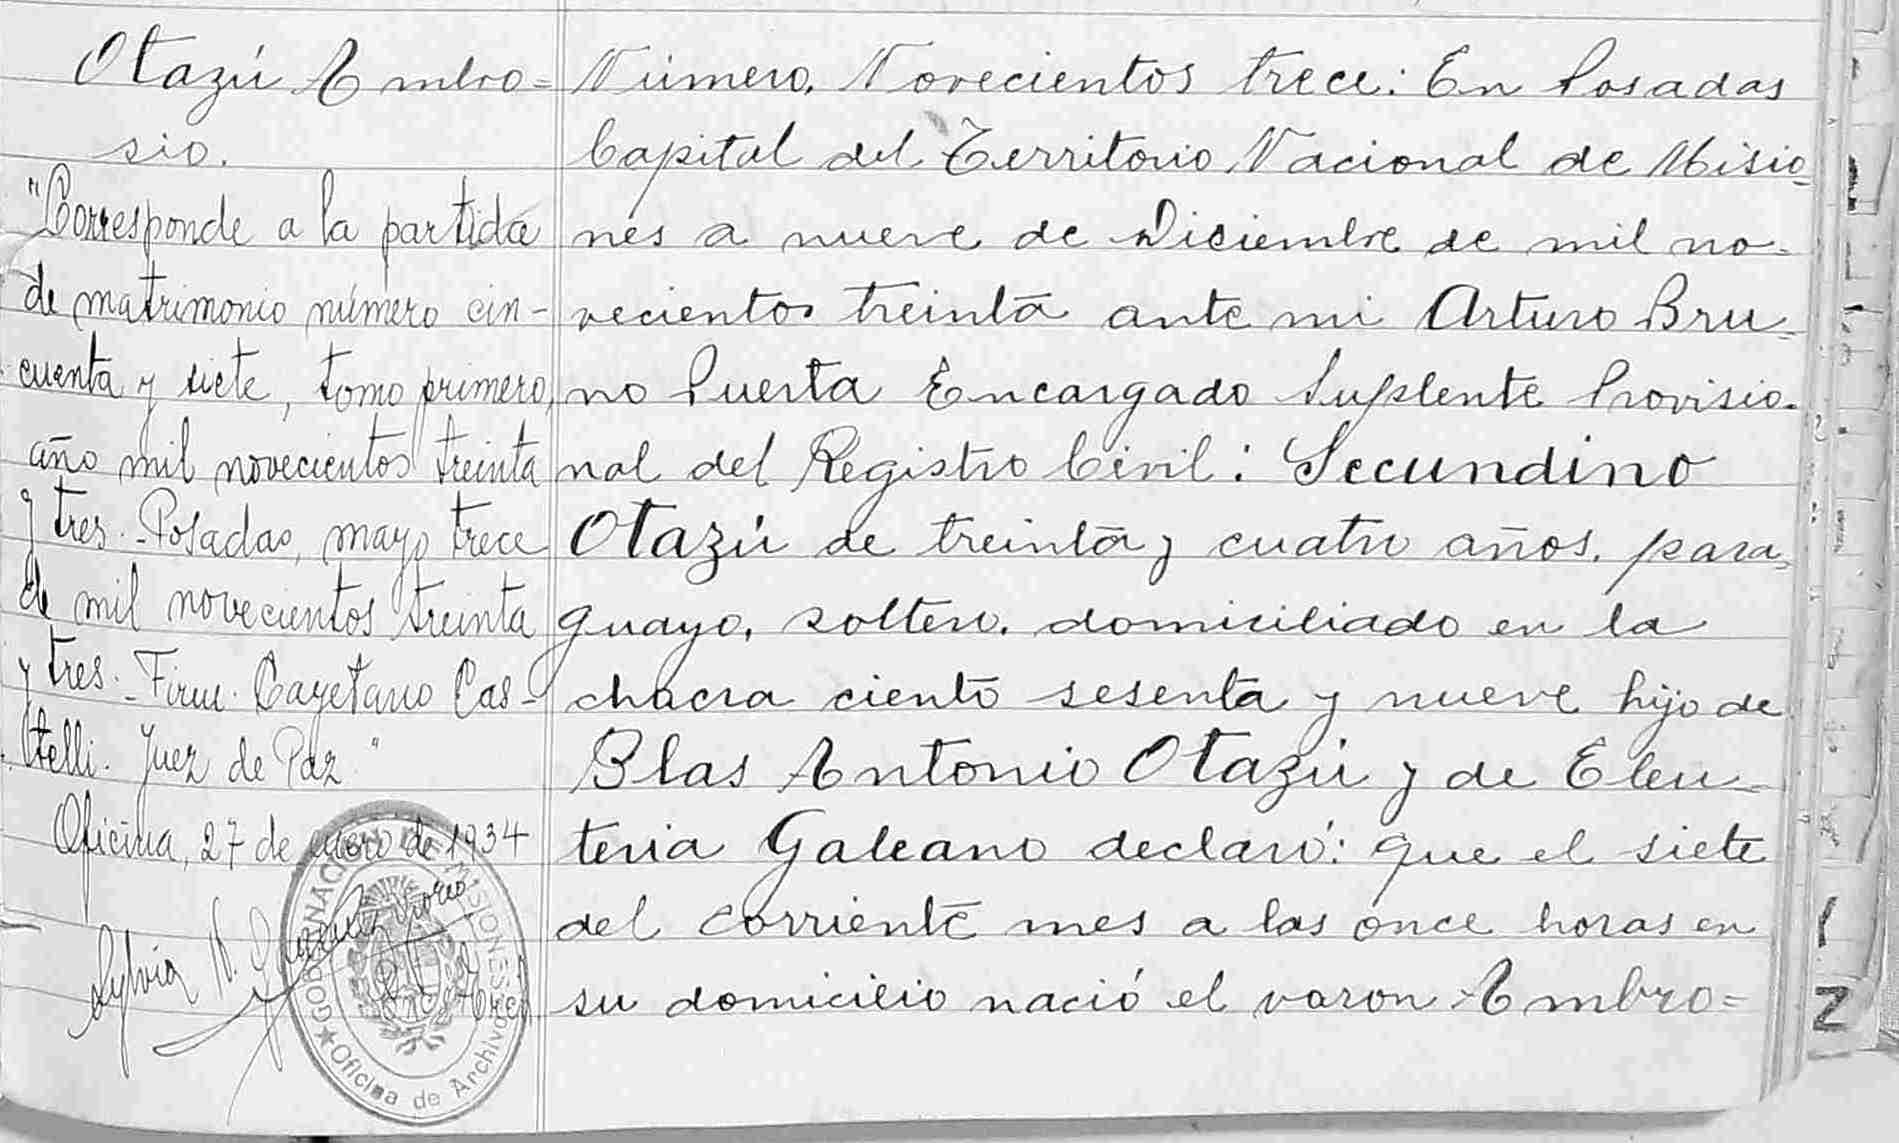 Otazú Ambro=
sio.
"Corresponde a la partida
de matrimonio número cin-
cuenta y siete, tomo primero,
año mil novecientos treinta
y tres.- Posadas, mayo trece
de mil novecientos treinta
y tres.- Firm. Cayetano Cas-
telli. Juez de Paz"
Oficina, 27 de enero de 1934
Sylvia N.
GOBERNACIÓN DE MISIONES
★ Oficina de Archivo
Número, Novecientos trece: En Posadas
Capital del Territorio Nacional de Misio=
nes a nueve de Diciembre de mil no-
vecientos treinta ante mi Arturo Bru-
no Puerta Encargado Suplente Provisio-
nal del Registro Civil: Secundino
Otazú de treinta y cuatro años, para-
guayo, soltero, domiciliado en la
chacra ciento sesenta y nueve hijo de
Blas Antonio Otazú y de Eleu-
teria Galeano declaró: que el siete
del corriente mes a las once horas en
su domicilio nació el varon Ambro=